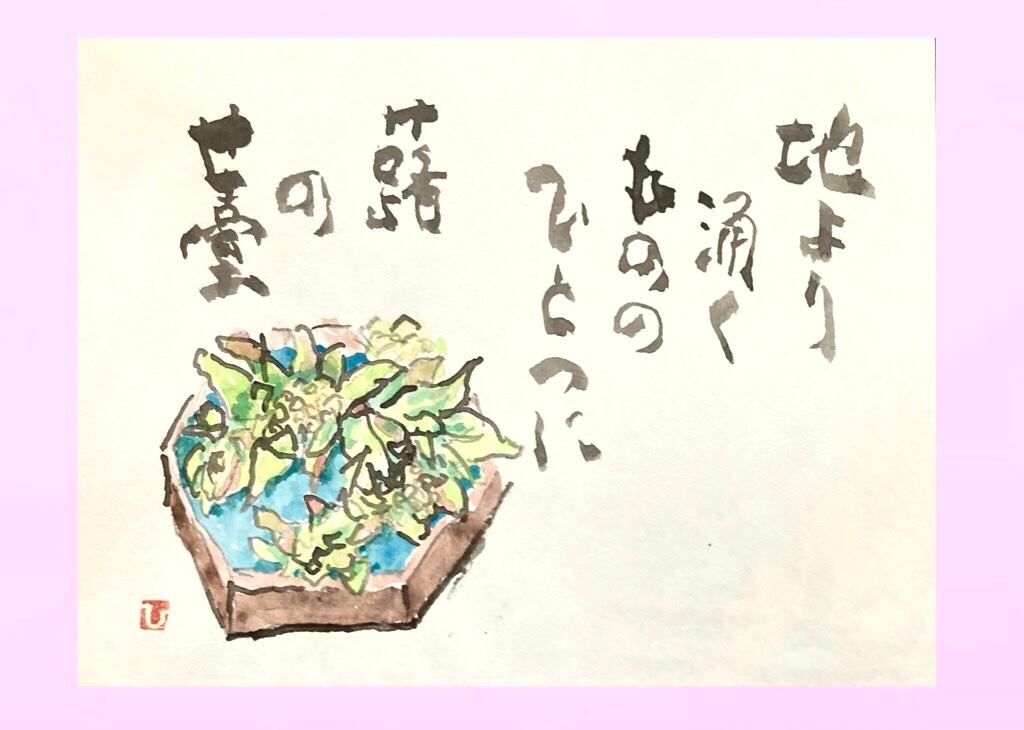 地より
涌く
ものの
ひとつに
蕗
の
薹
ひ